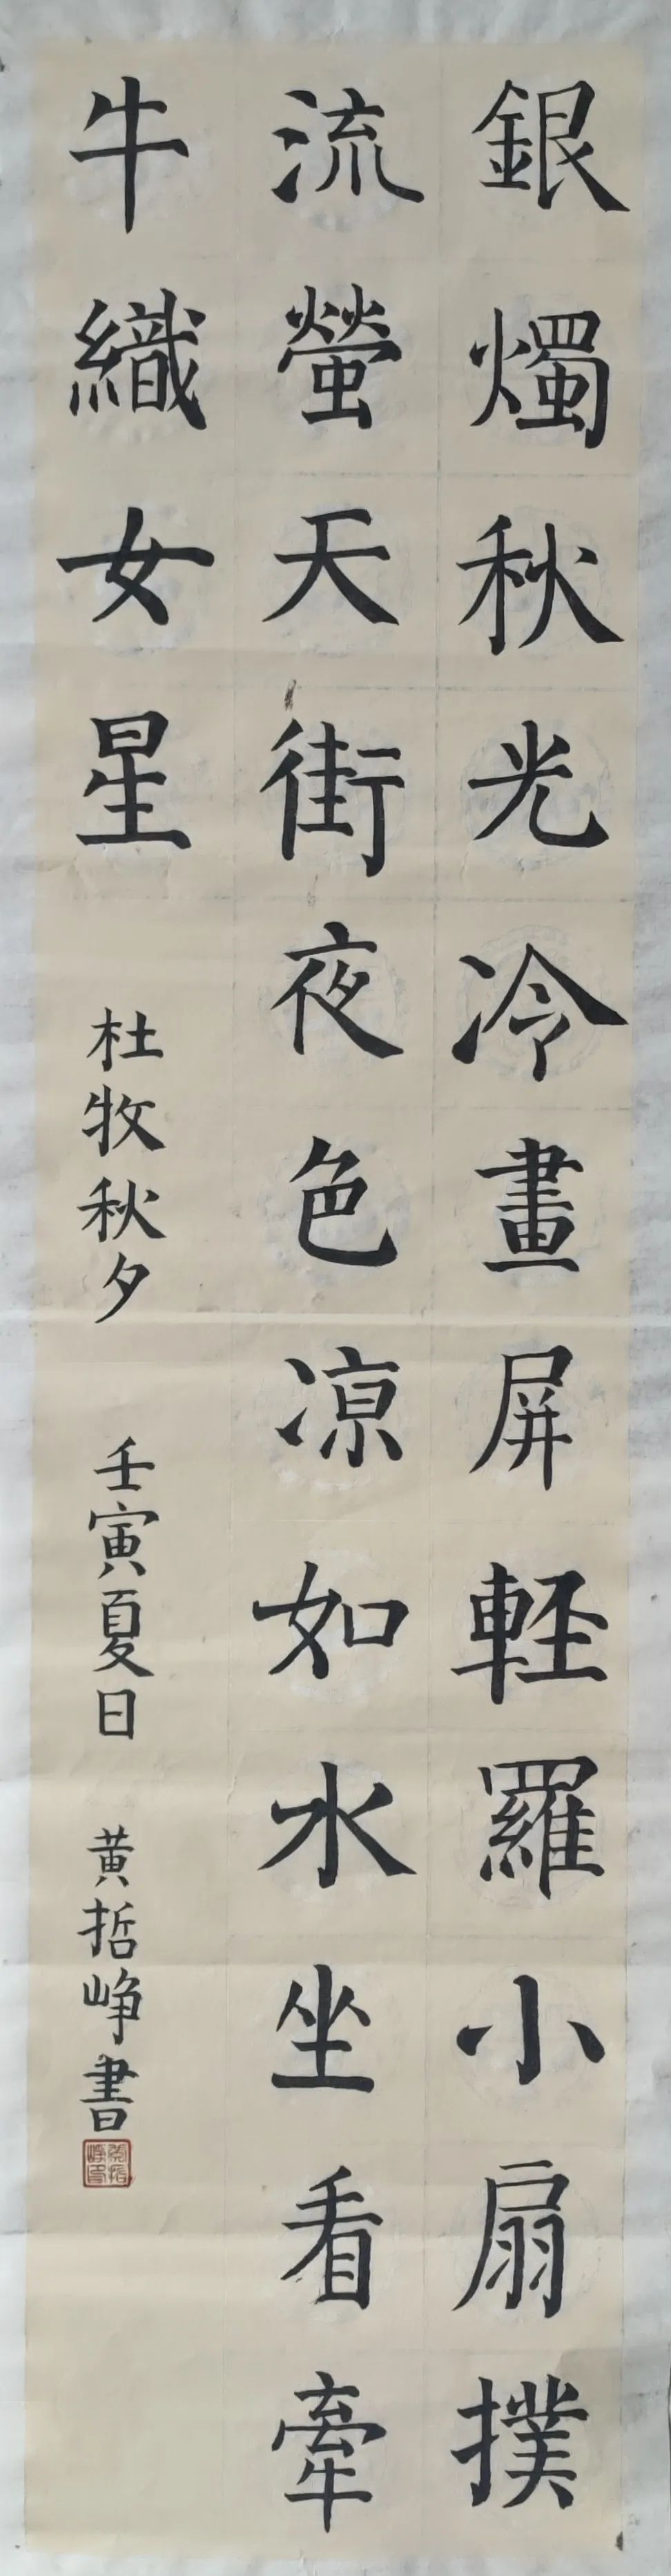 銀燭秋光冷畫屏輕羅小扇撲
流螢天街夜色凉如水坐看牽
牛織女星
杜牧秋夕
壬寅夏日
黄哲峥書